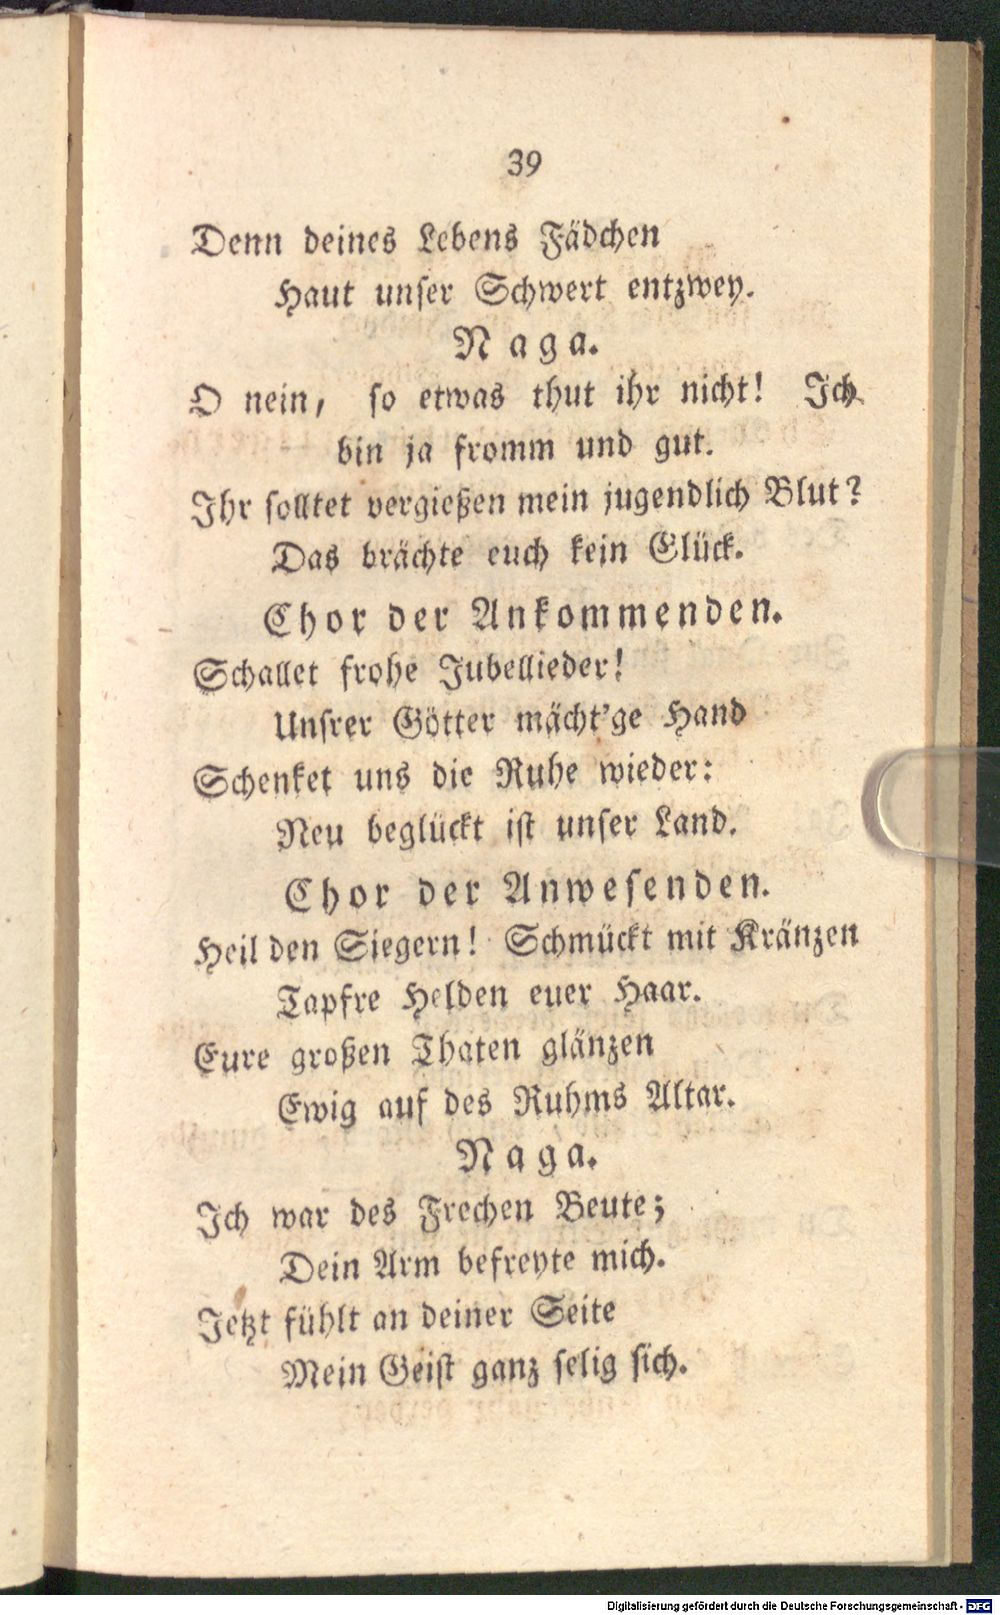 39
Denn deines Lebens Fädchen
Haut unser Schwert entzwey.
Naga.
O nein, so etwas thut ihr nicht! Ich
bin ja fromm und gut.
Ihr solltet vergießen mein jugendlich Blut?
Das brächte euch kein Glück.
Chor der Ankommenden.
Schallet frohe Jubellieder!
Unsrer Götter mächt'ge Hand
Schenket uns die Ruhe wieder:
Neu beglückt ist unser Land.
Chor der Anwesenden.
Heil den Siegern! Schmückt mit Kränzen
Tapfre Helden euer Haar.
Eure großen Thaten glänzen
Ewig auf des Ruhms Altar.
Naga.
Ich war des Frechen Beute;
Dein Arm befreyte mich.
Jetzt fühlt an deiner Seite
Mein Geist ganz selig sich.
Digitalisierung gefördert durch die Deutsche Forschungsgemeinschaft - DFG